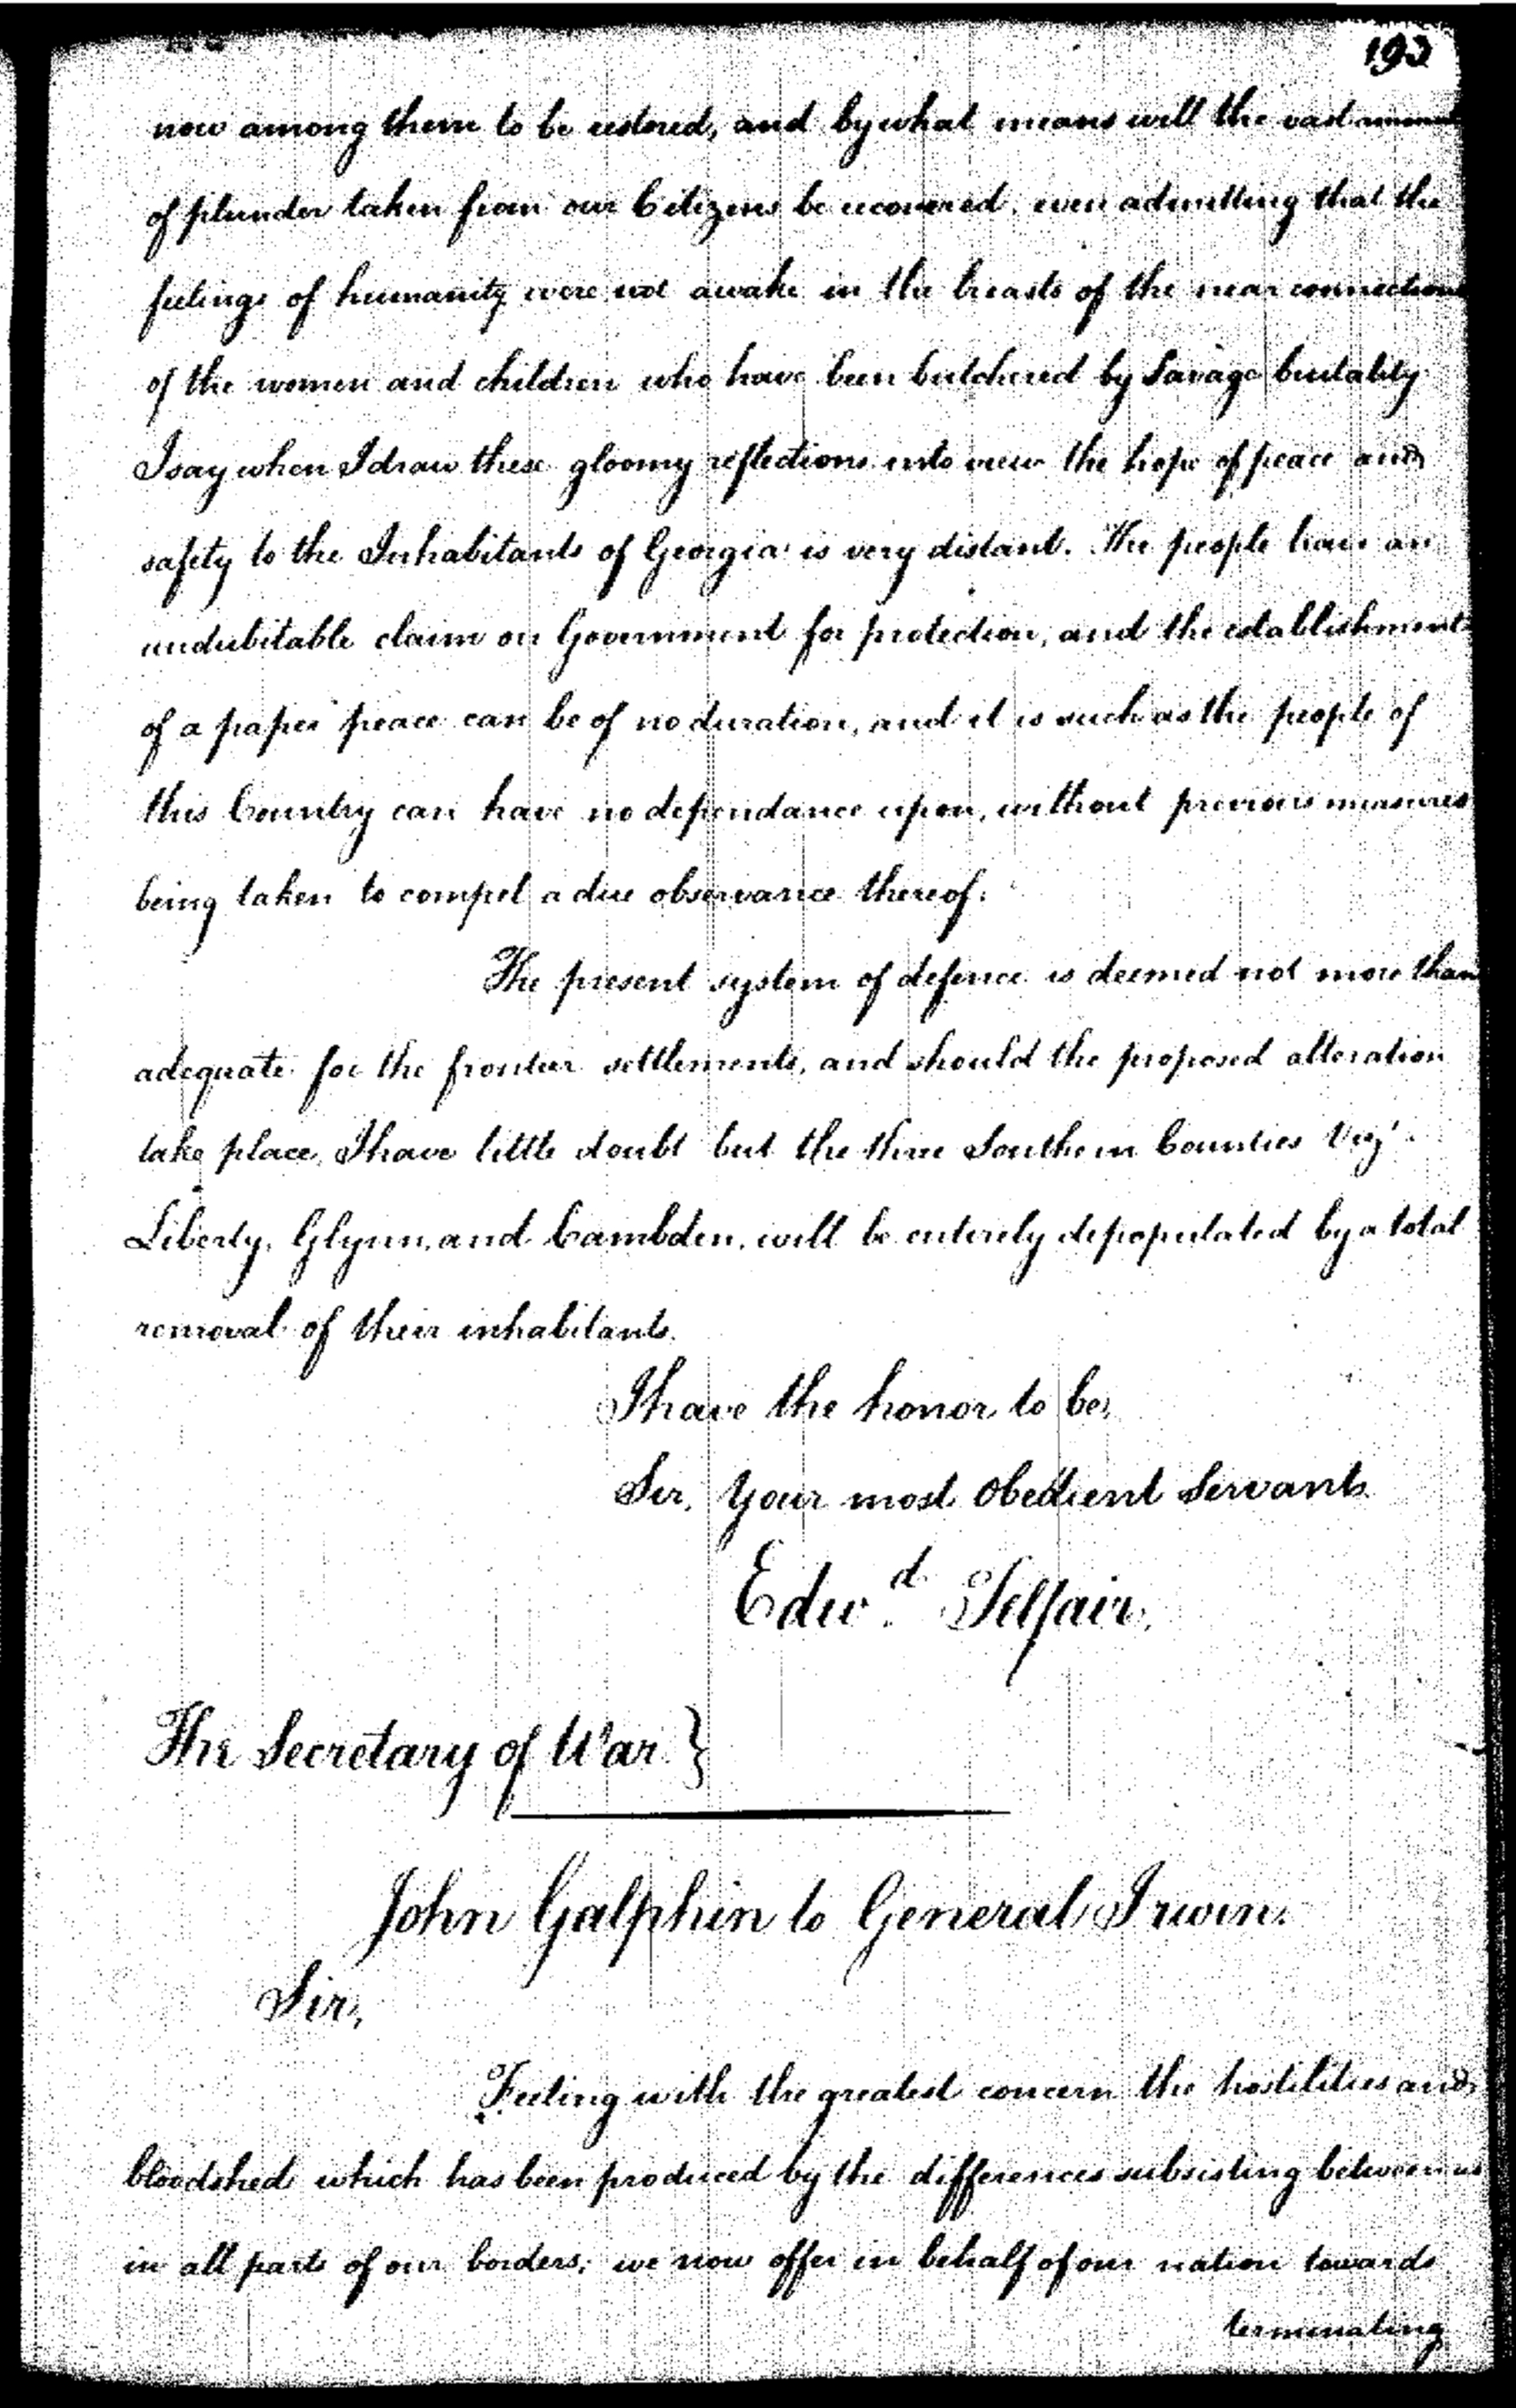 193
now among them to be restored, and by what means will the vast amount
of plunder taken from our Citizens be recovered, even admitting that the
feelings of humanity were not awake in the breasts of the near connections
of the women and children who have been butchered by Savage brutality
I say when I draw these gloomy reflections into view the hope of peace and
safety to the Inhabitants of Georgia is very distant. The people have an
undubitable claim on Government for protection, and the establishment
of a paper peace can be of no duration, and it is such as the people of
this Country can have no dependance upon, without previous measures
being taken to compel a due observance thereof.
The present system of defence is deemed not more than
adequate for the frontier settlements, and should the proposed alteration
take place, I have little doubt but the three Southern Counties Viz.t
Liberty, Glynn, and Cambden, will be entirely depopulated by a total
removal of their inhabitants.
I have the honor to be,
Sir, Your most Obedient Servant.
Edw.d Telfair,
The Secretary of War }
John Galphin to General Irwin.
Sir,
Feeling with the greatest concern the hostilities and
bloodshed which has been produced by the differences subsisting between us
in all parts of our borders; we now offer in behalf of our nation towards
terminating